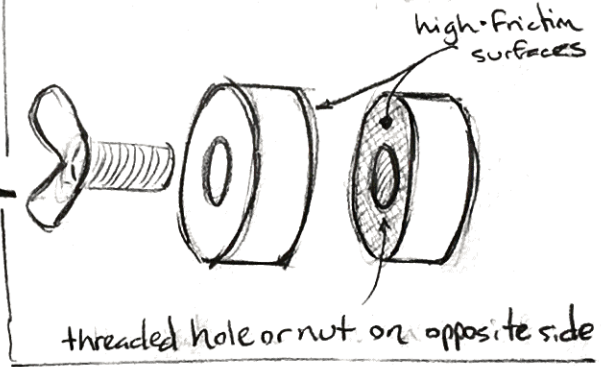 high-friction
surfaces
threaded hole or nut on opposite side